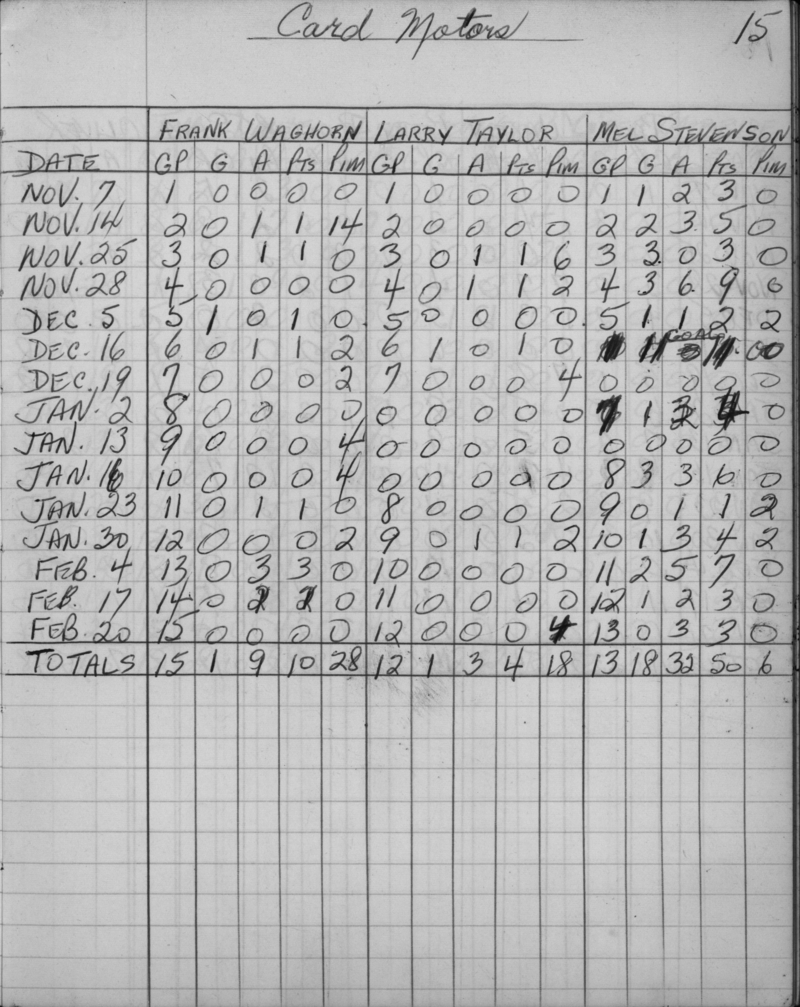 Card Motors 15
FRANK WAGHORN LARRY TAYLOR MEL STEVENSON
DATE GP G A Pts Pim GP G A Pts Pim GP G A Pts Pim
NOV. 7 1 0 0 0 0 1 0 0 0 0 1 1 2 3 0
NOV. 14 2 0 1 1 14 2 0 0 0 0 2 2 3 5 0
NOV. 25 3 0 1 1 0 3 0 1 1 6 3 3 0 3 0
NOV. 28 4 0 0 0 0 4 0 1 1 2 4 3 6 9 0
DEC. 5 5 1 0 1 0 5 0 0 0 0 5 1 1 2 2
DEC. 16 6 0 1 1 2 6 1 0 1 0
DEC. 19 7 0 0 0 2 7 0 0 0 4 0 0 0 0 0
JAN. 2 8 0 0 0 0 0 0 0 0 0 7 1 3 4 0
JAN. 13 9 0 0 0 4 0 0 0 0 0 0 0 0 0 0
JAN. 16 10 0 0 0 4 0 0 0 0 0 8 3 3 6 0
JAN. 23 11 0 1 1 0 8 0 0 0 0 9 0 1 1 2
JAN. 30 12 0 0 0 2 9 0 1 1 2 10 1 3 4 2
FEB. 4 13 0 3 3 0 10 0 0 0 0 11 2 5 7 0
FEB. 17 14 0 2 2 0 11 0 0 0 0 12 1 2 3 0
FEB. 20 15 0 0 0 0 12 0 0 0 4 13 0 3 3 0
TOTALS 15 1 9 10 28 12 1 3 4 18 13 18 32 50 6